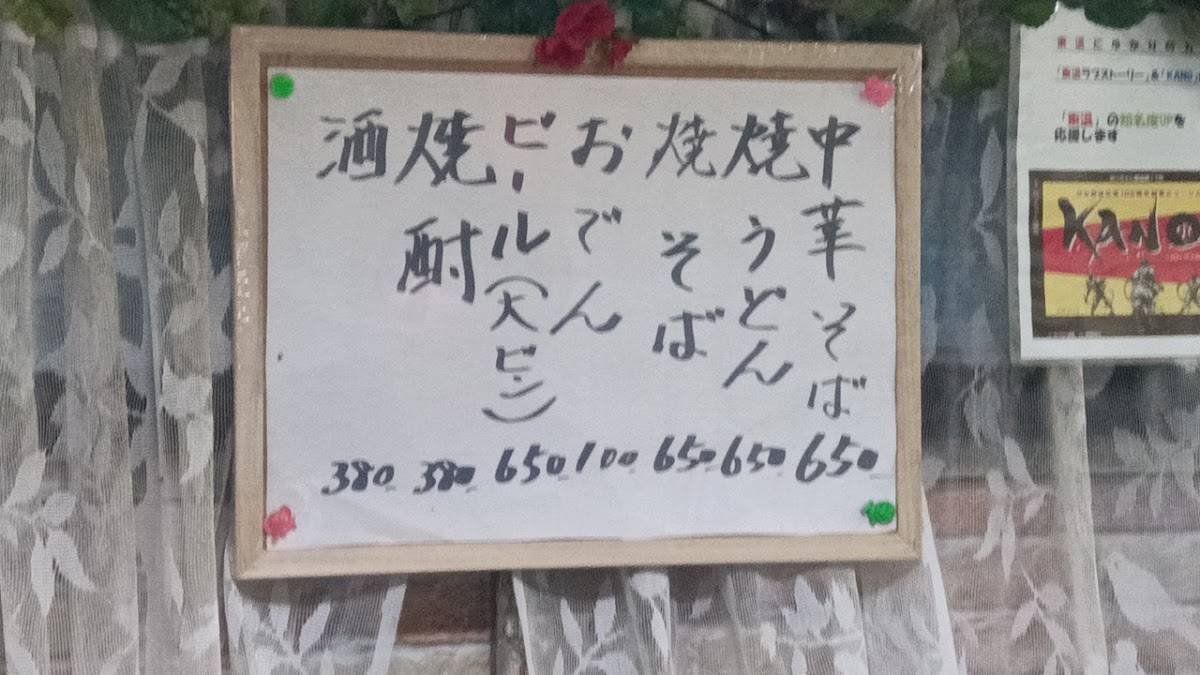 中華そば 650
焼うどん 650
焼そば 650
おでん 100
ビール(大ビン) 650
焼酎 380
酒 380
「東温ラブストーリー」&「KANO」
「東温」の知名度UPを
応援します
KANO